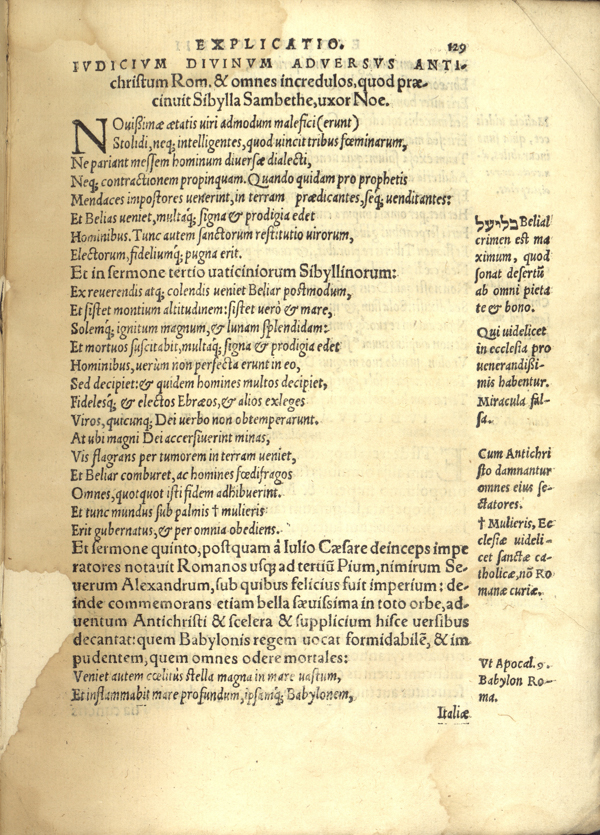 EXPLICATIO. 129
IVDICIVM DIVINVM ADVERSVS ANTI-
christum Rom. & omnes incredulos, quod præ-
cinuit Sibylla Sambethe, uxor Noe.
NOuißimæ ætatis uiri admodum malefici (erunt)
Stolidi, neq; intelligentes, quod uincit tribus fœminarum,
Ne pariant messem hominum diuersæ dialecti,
Neq; contractionem propinquam. Quando quidam pro prophetis
Mendaces impostores uenerint, in terram prædicantes, seq; uenditantes:
Et Belias ueniet, multaq; signa & prodigia edet
Hominibus. Tunc autem sanctorum restitutio uirorum,
Electorum, fideliumq; pugna erit.
Et in sermone tertio uaticiniorum Sibyllinorum:
Ex reuerendis atq; colendis ueniet Beliar postmodum,
Et sistet montium altitudinem: sistet uerò & mare,
Solemq; ignitum magnum, & lunam splendidam:
Et mortuos suscitabit, multaq; signa & prodigia edet
Hominibus, uerùm non perfecta erunt in eo,
Sed decipiet: & quidem homines multos decipiet,
Fidelesq; & electos Ebræos, & alios exleges
Viros, quicunq; Dei uerbo non obtemperarunt.
At ubi magni Dei accersiuerint minas,
Vis flagrans per tumorem in terram ueniet,
Et Beliar comburet, ac homines fœdifragos
Omnes, quotquot isti fidem adhibuerint.
Et tunc mundus sub palmis † mulieris
Erit gubernatus, & per omnia obediens.
Et sermone quinto, postquam à Iulio Cæsare deinceps impe
ratores notauit Romanos usq; ad tertiū Pium, nimirum Se-
uerum Alexandrum, sub quibus felicius fuit imperium: de-
inde commemorans etiam bella sæuissima in toto orbe, ad-
uentum Antichristi & scelera & supplicium hisce uersibus
decantat: quem Babylonis regem uocat formidabilē, & im
pudentem, quem omnes odere mortales:
Veniet autem cœlitus stella magna in mare uastum,
Et inflammabit mare profundum, ipsamq; Babylonem,
Italiæ
בליעל Belial
crimen est ma
ximum, quod
sonat desertū
ab omni pieta
te & bono.
Qui uidelicet
in ecclesia pro
uenerandißi-
mis habentur.
Miracula fal-
sa.
Cum Antichri
sto damnantur
omnes eius se-
ctatores.
† Mulieris, Ec
clesiæ uideli-
cet sanctæ ca-
tholicæ, nō Ro
manæ curiæ.
Vt Apocal. 9.
Babylon Ro-
ma.